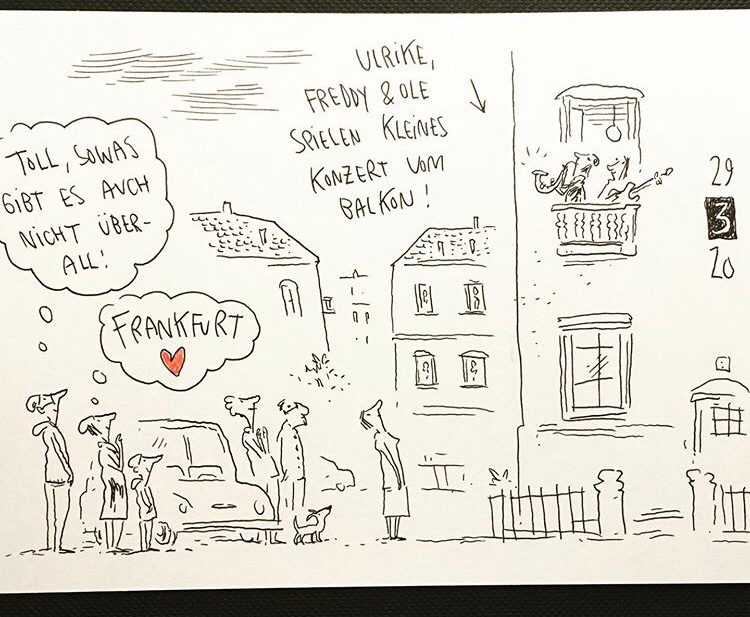 ULRIKE,
FREDDY & OLE
SPIELEN KLEINES
KONZERT VOM
BALKON!
TOLL, SOWAS
GIBT ES AUCH
NICHT ÜBER-
ALL!
FRANKFURT
29
3
20